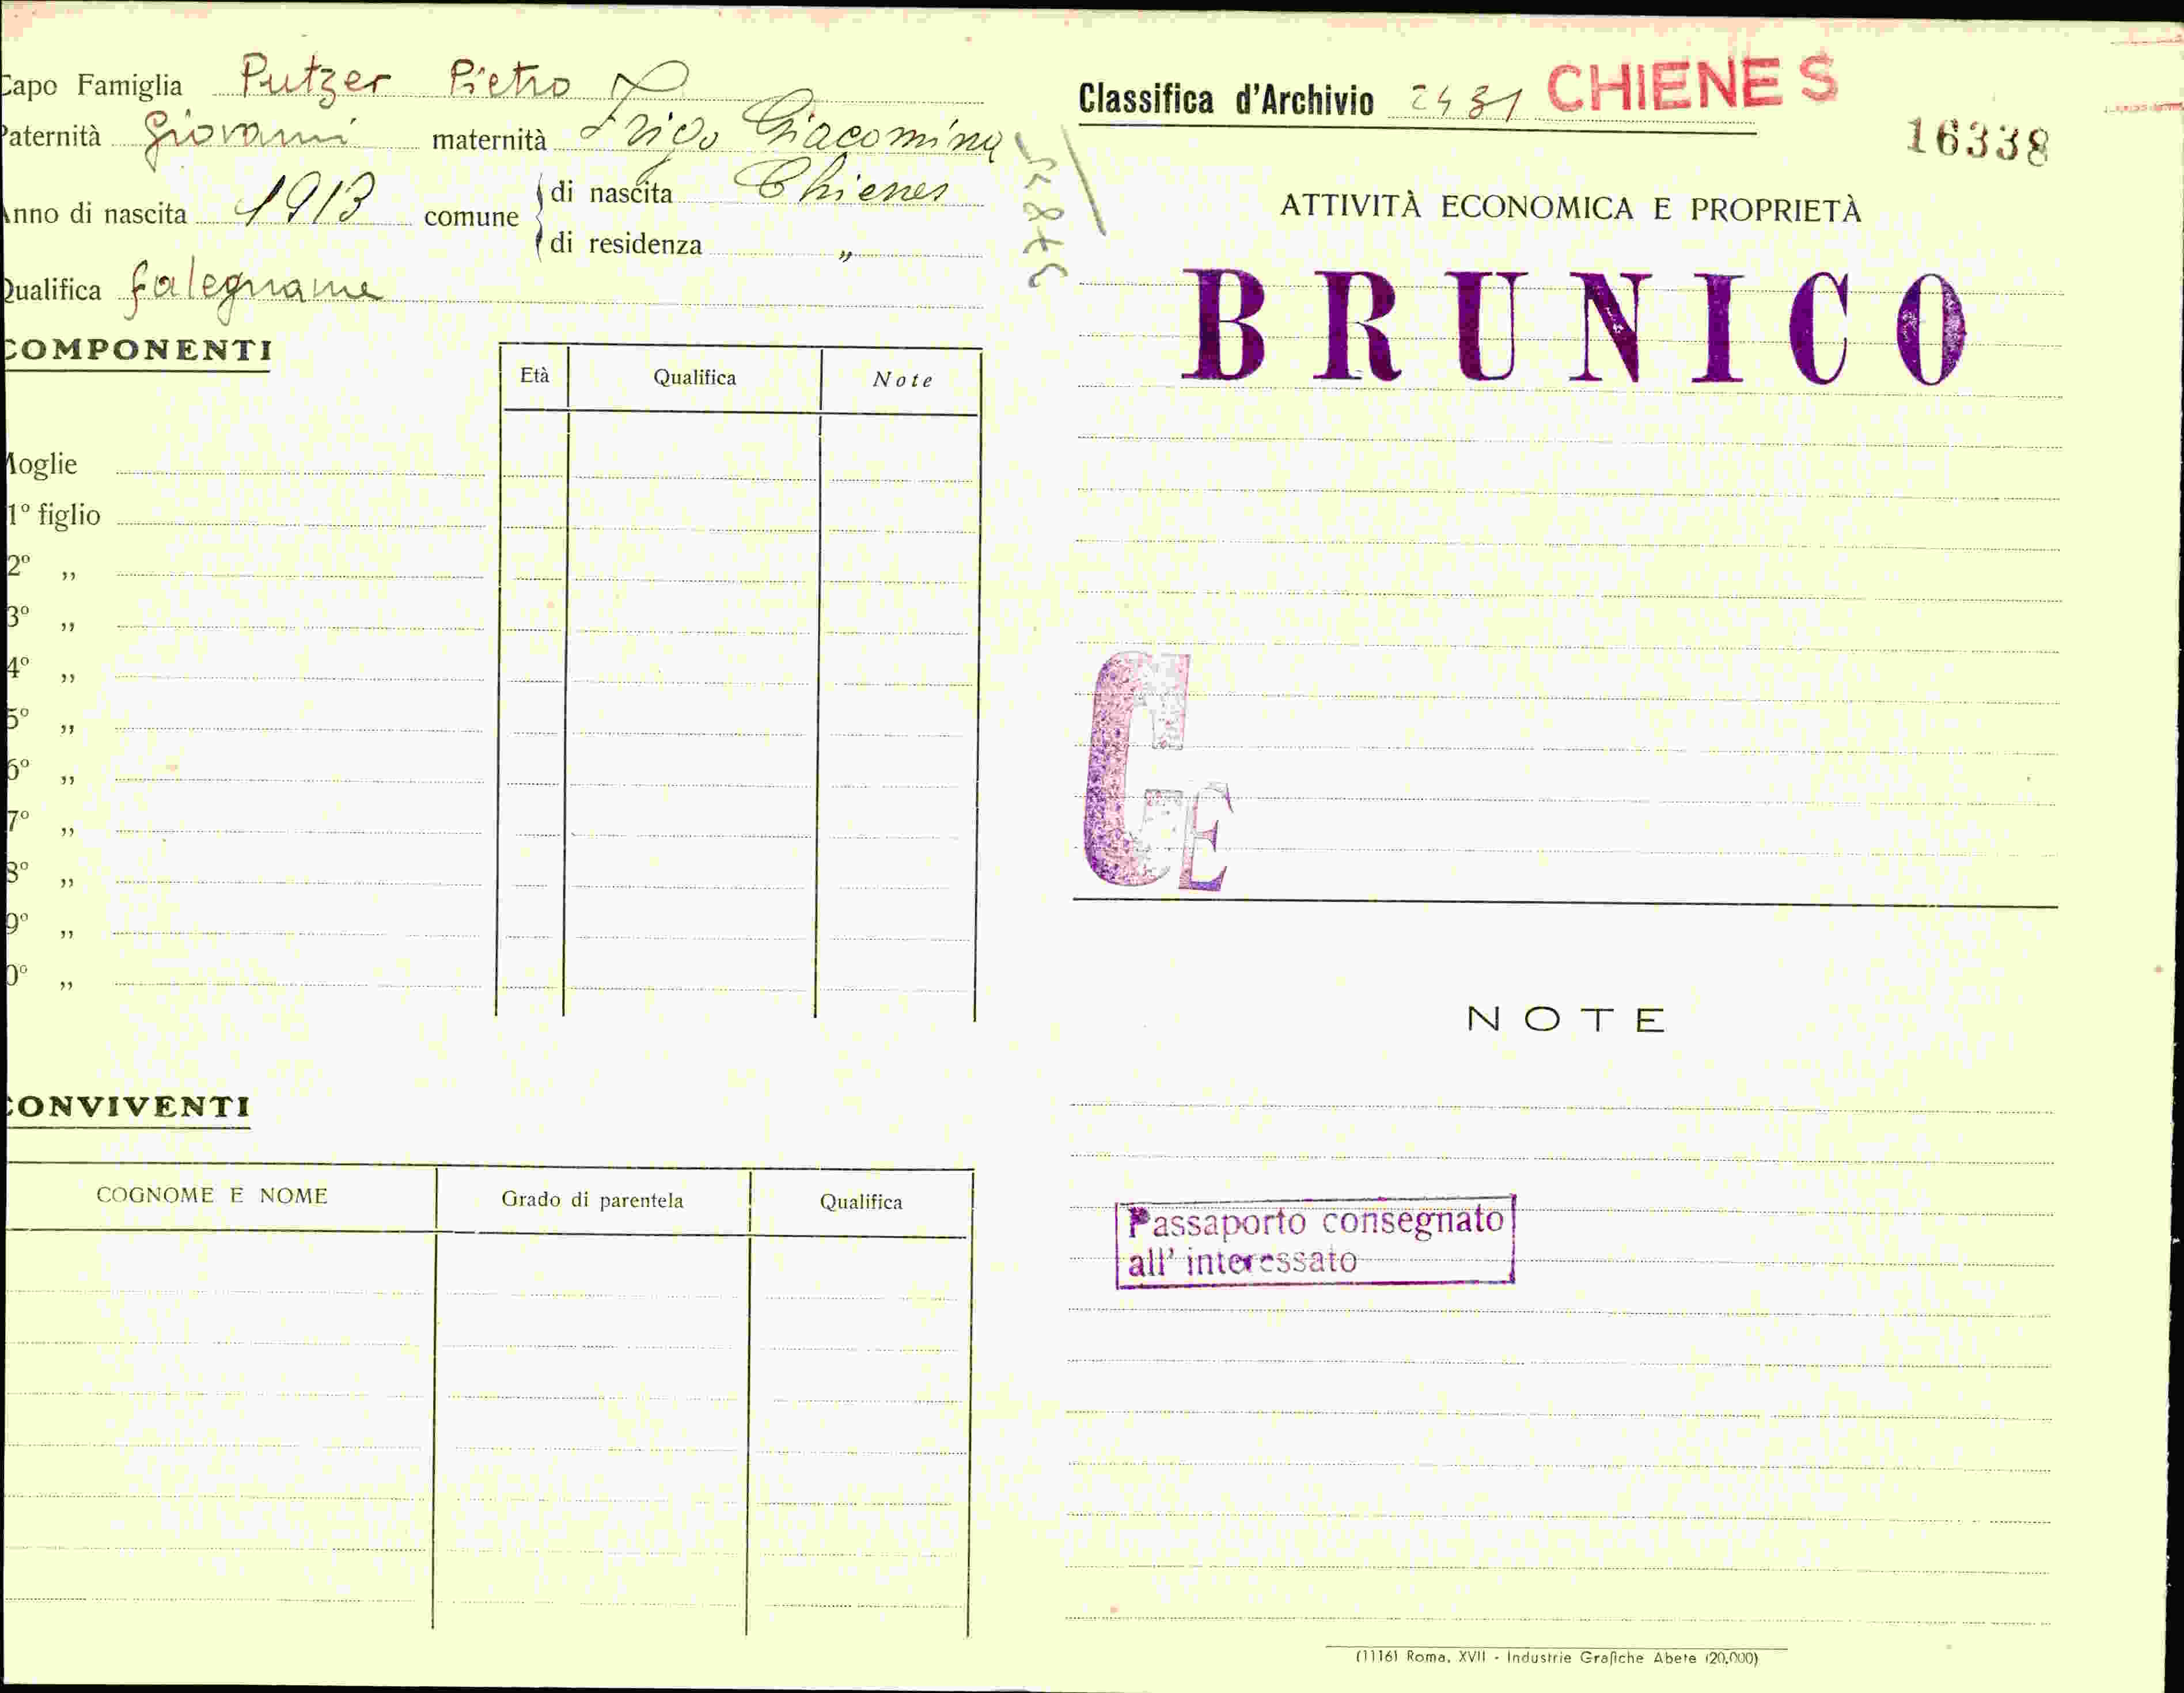 Capo Famiglia Putzer Pietro
Paternità Giovanni maternità Frigo Giacomina
Anno di nascita 1913 comune di nascita Chienes
di residenza „
Qualifica falegname
COMPONENTI
Età Qualifica Note
Moglie
1° figlio
2° „
3° „
4° „
5° „
6° „
7° „
8° „
9° „
0° „
CONVIVENTI
COGNOME E NOME Grado di parentela Qualifica
Classifica d'Archivio 2431 CHIENES
16338
ATTIVITÀ ECONOMICA E PROPRIETÀ
BRUNICO
GE
NOTE
Passaporto consegnato
all' interessato
(1116) Roma, XVII - Industrie Grafiche Abete (20.000)